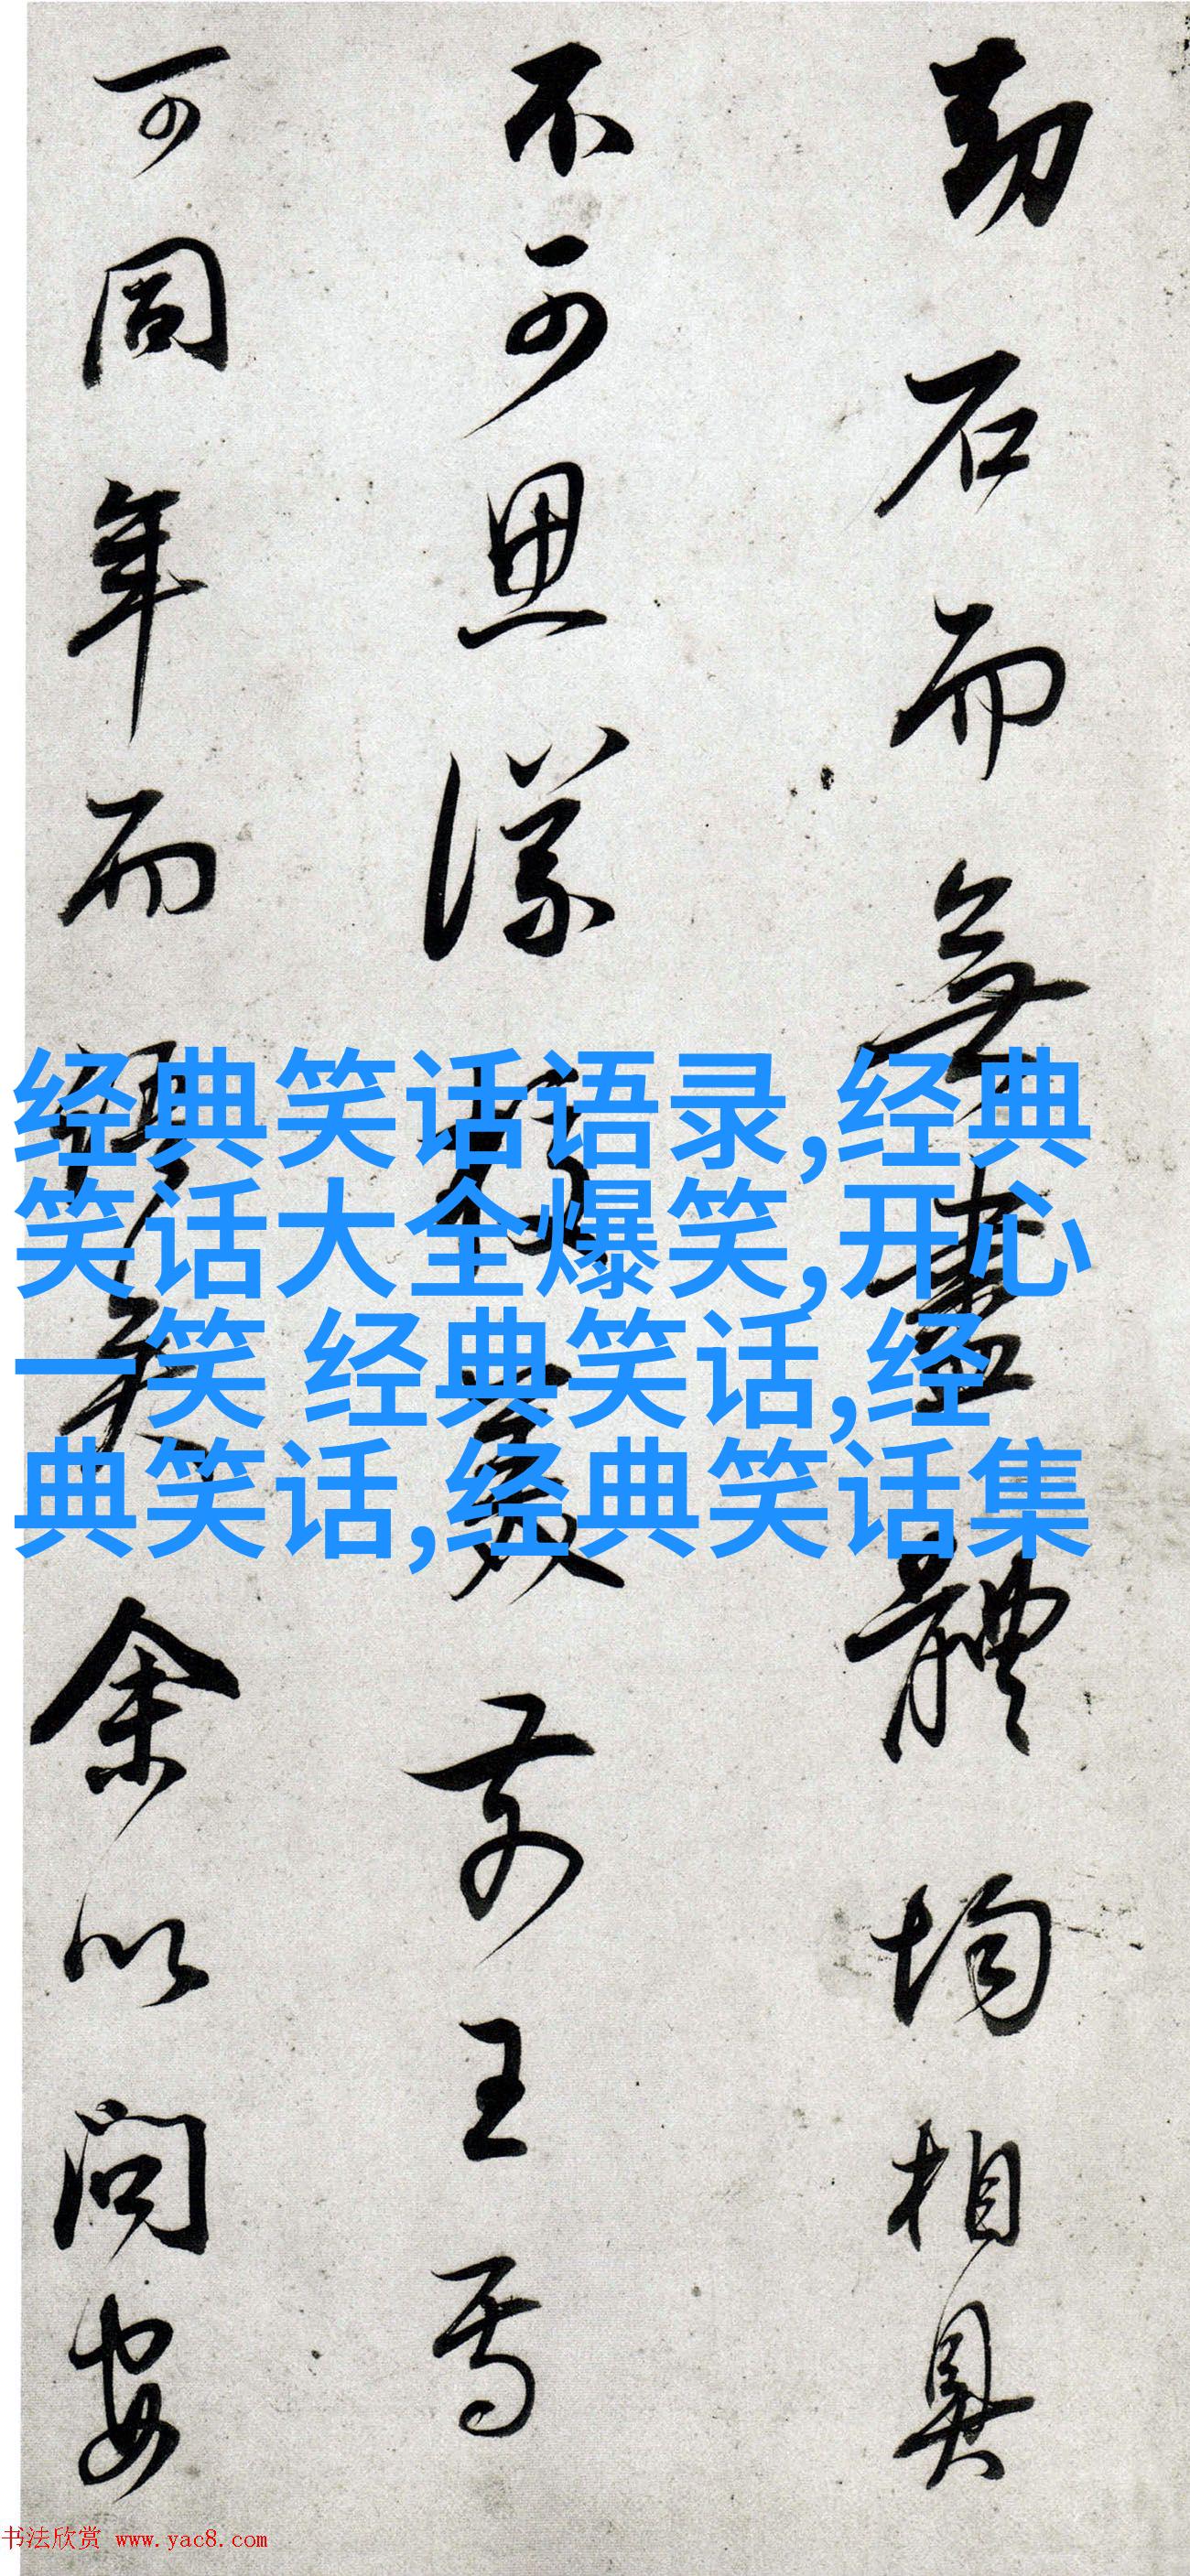 劫石而無盡體均相具
不可思議
前王焉
可同年而
余以問安
经典笑话语录,经典
笑话大全爆笑,开心
一笑 经典笑话,经
典笑话,经典笑话集
书法欣赏 www.yac8.com